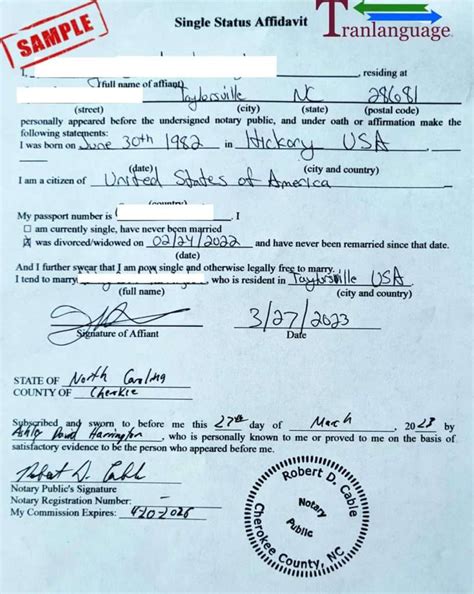 SAMPLE
Single Status Affidavit
Tranlanguage
I, , residing at
(full name of affiant)
Taylorsville NC 28681
(street) (city) (state) (postal code)
personally appeared before the undersigned notary public, and under oath or affirmation make the
following statements:
I was born on June 30th 1982 in Hickory USA
(date) (city and country)
I am a citizen of United States of America
(country)
My passport number is . I
☐ am currently single, have never been married
☒ was divorced/widowed on 02/24/2022 and have never been remarried since that date.
(date)
And I further swear that I am now single and otherwise legally free to marry.
I tend to marry , who is resident in Taylorsville USA
(full name) (city and country)
3/27/2023
Signature of Affiant Date
STATE OF North Carolina
COUNTY OF
Subscribed and sworn to before me this 27th day of March, 2023 by
Harrington, who is personally known to me or proved to me on the basis of
satisfactory evidence to be the person who appeared before me.
Robert D. Cable
Notary Public's Signature
Notary Registration Number:
My Commission Expires: 4-20-2026
Robert D. Cable
Notary
Public
Cherokee County, NC